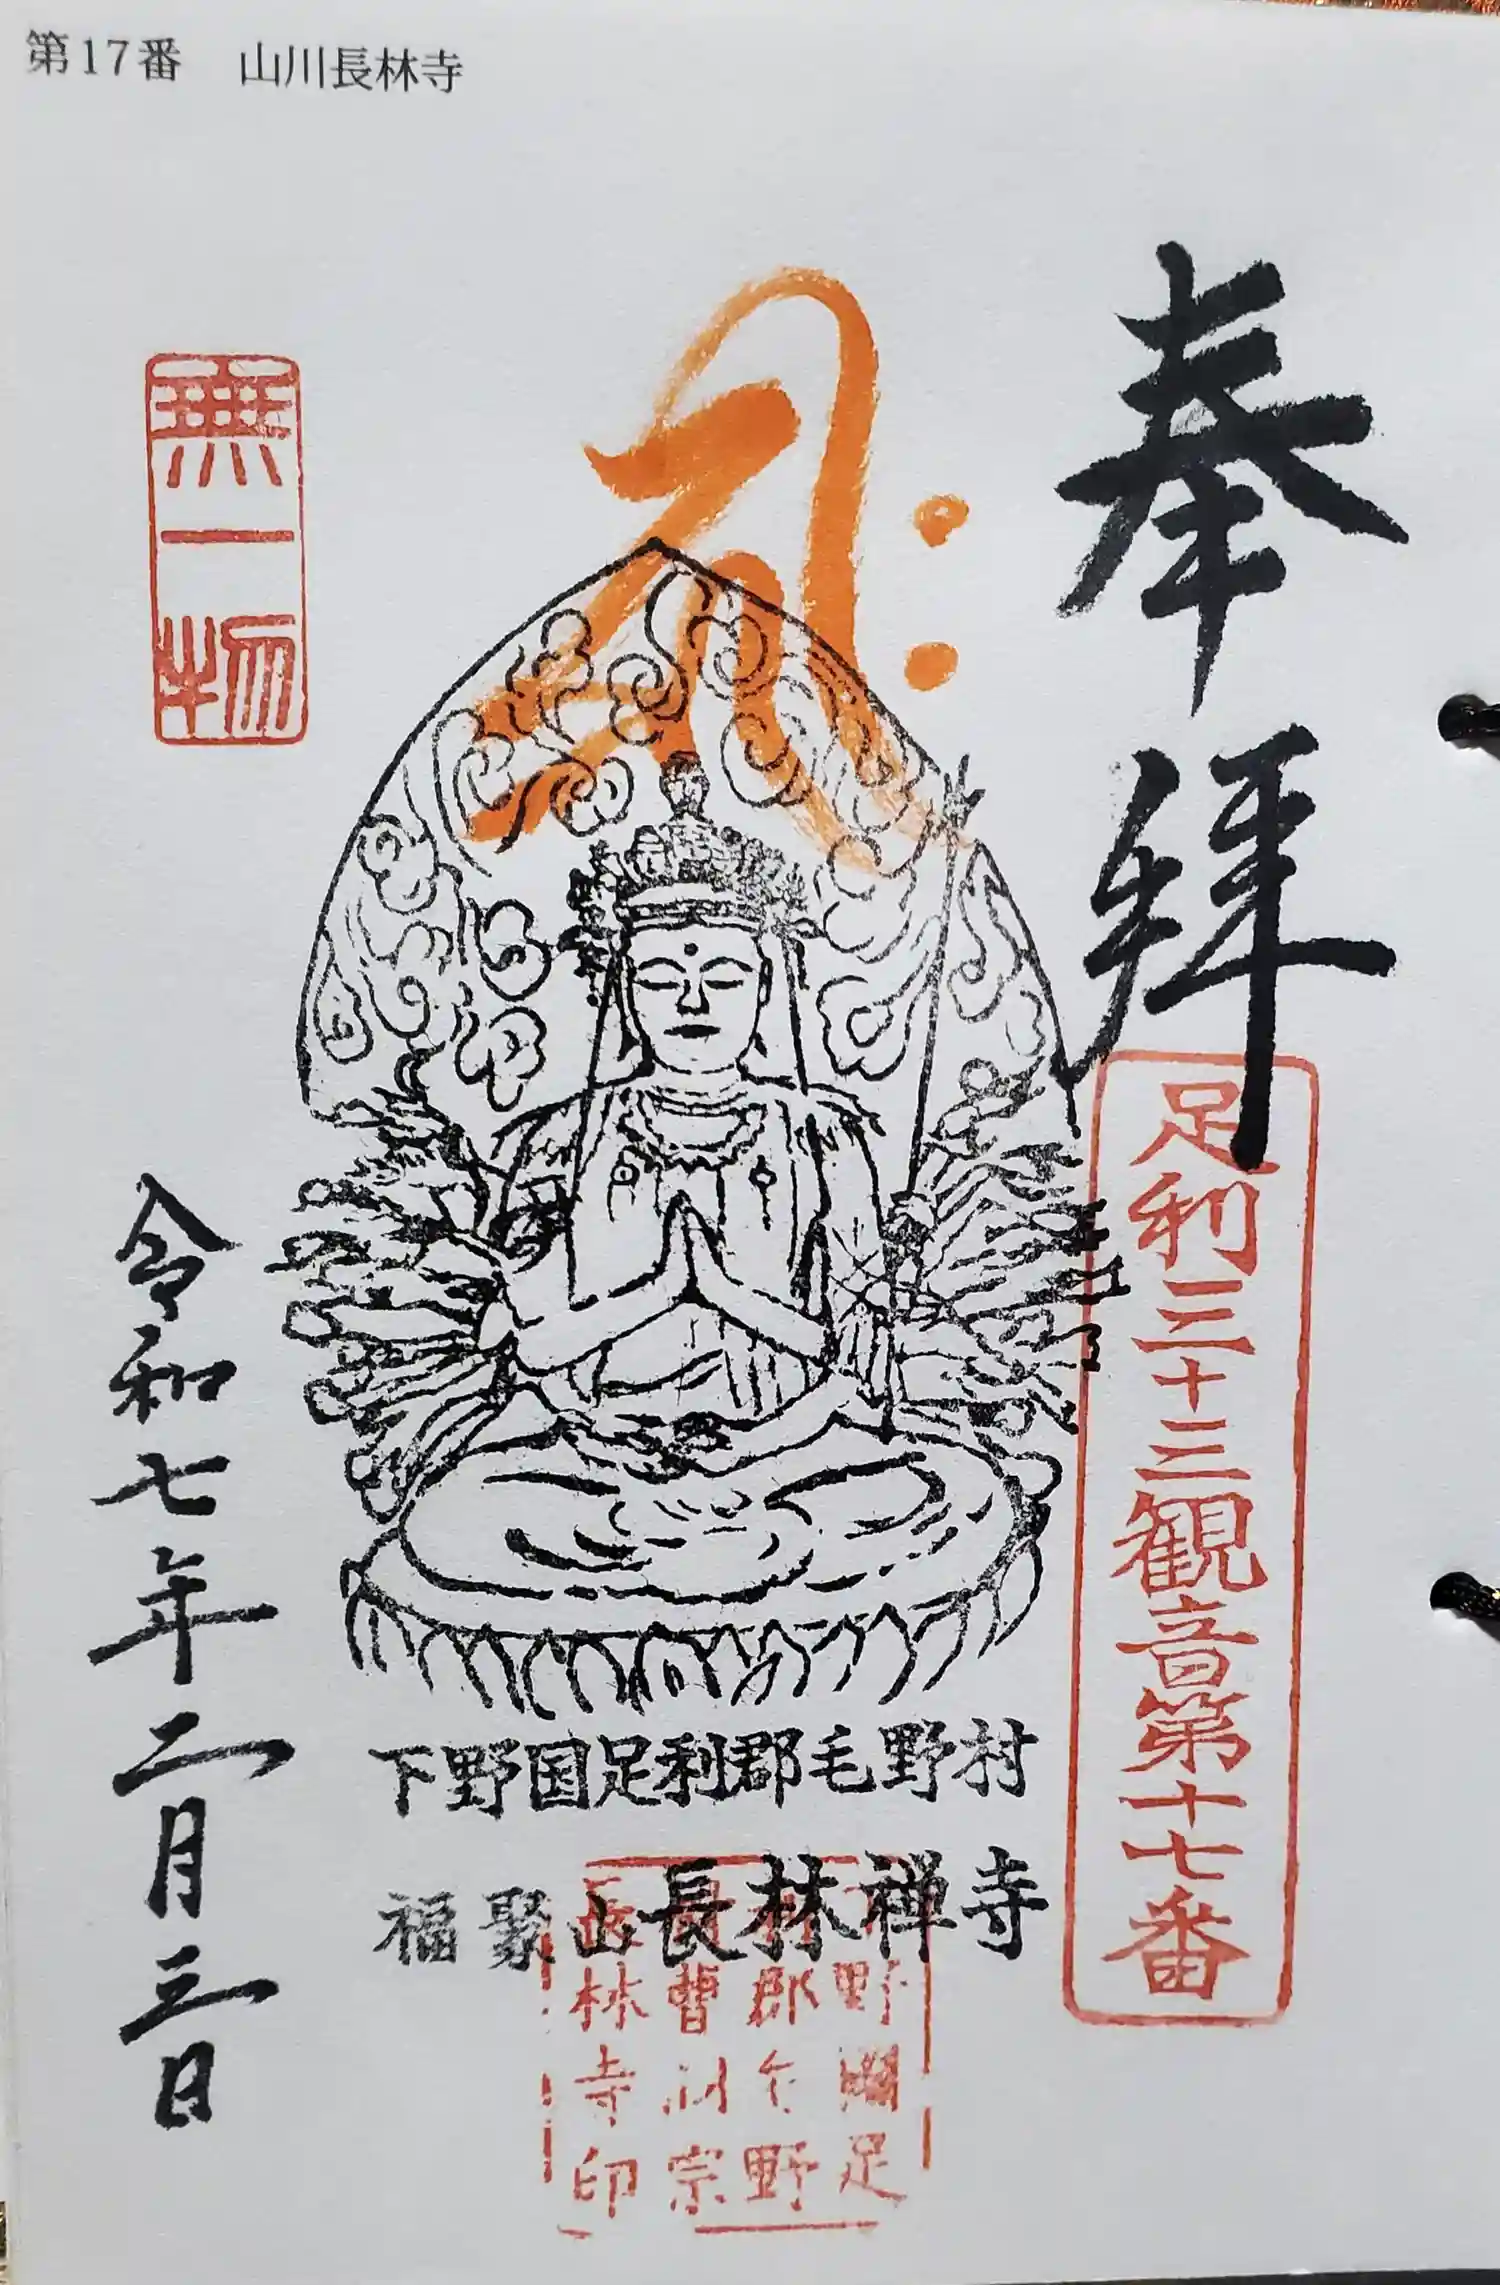 第17番 山川長林寺
奉拝
足利三十三観音第十七番
無一物
下野国足利郡毛野村
福聚山長林禅寺
令和七年二月三日
長林寺印